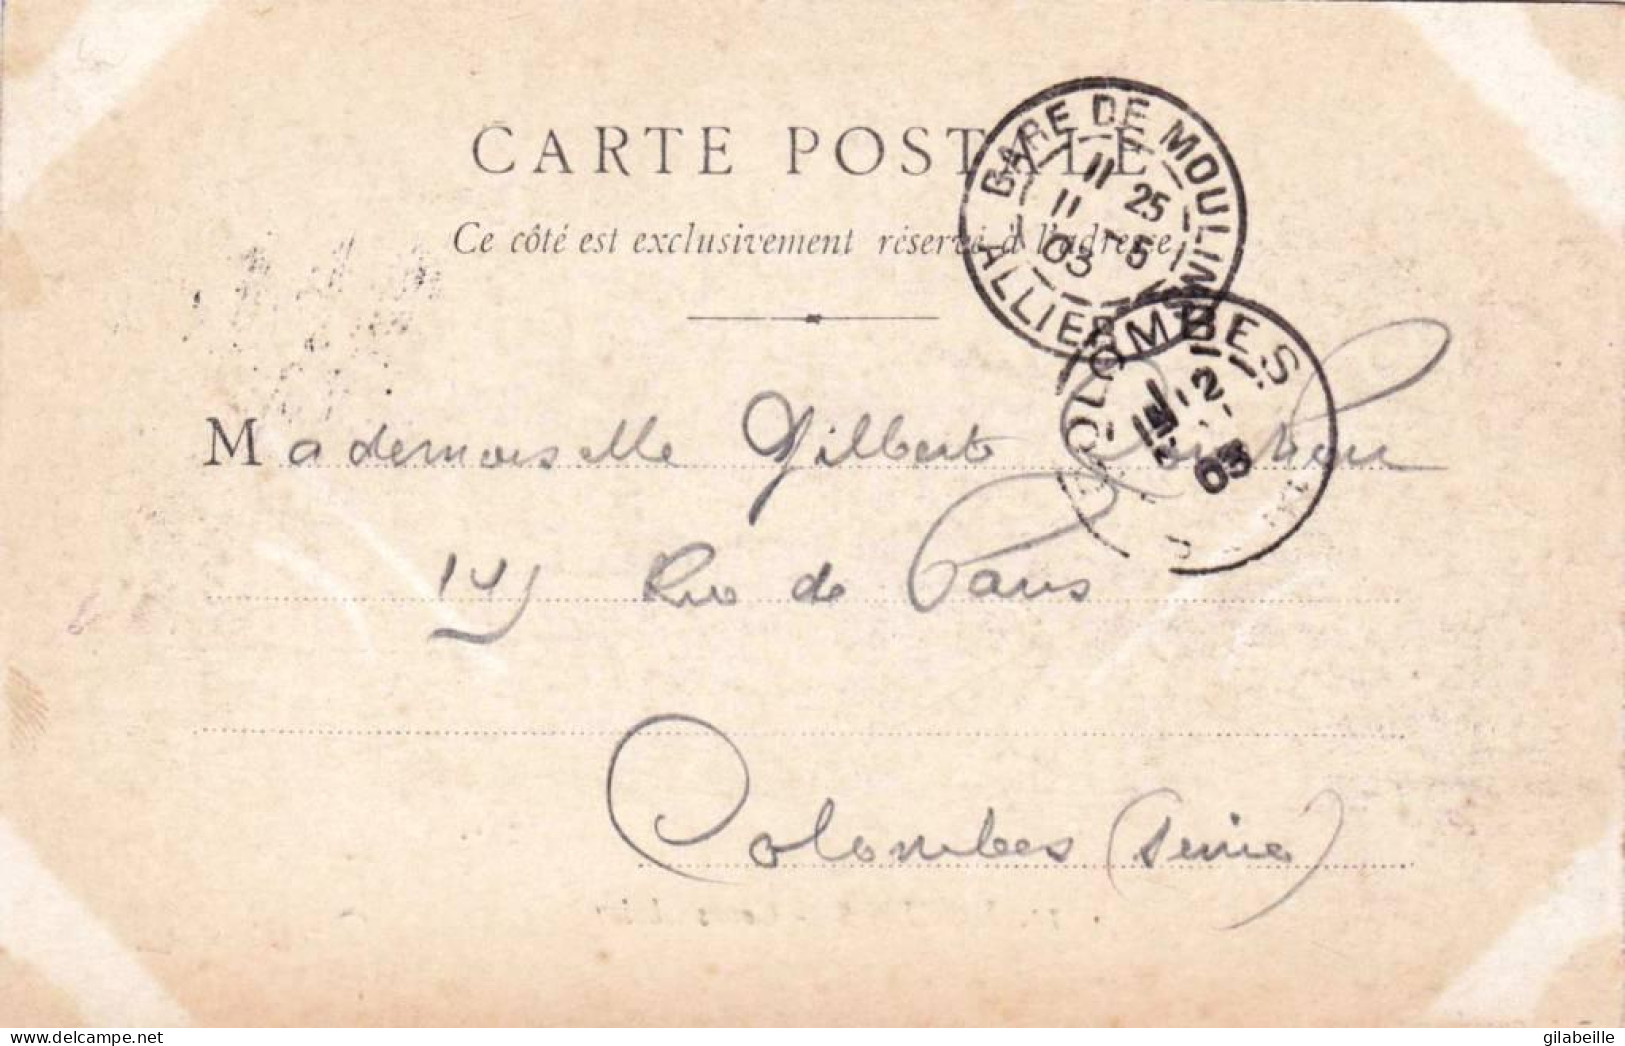 CARTE POSTALE
Ce côté est exclusivement réservé à l'adresse
GARE DE MOULINS
11 25
11 5
03
ALLIER
COLOMBES
12
03
Mademoiselle Gilberte
Rue de Paris
Colombes (Seine)
delcampe.net
gilabeille